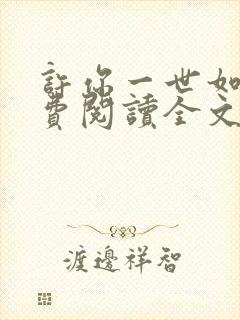 許你一世如
費閱讀全文
渡邊祥智